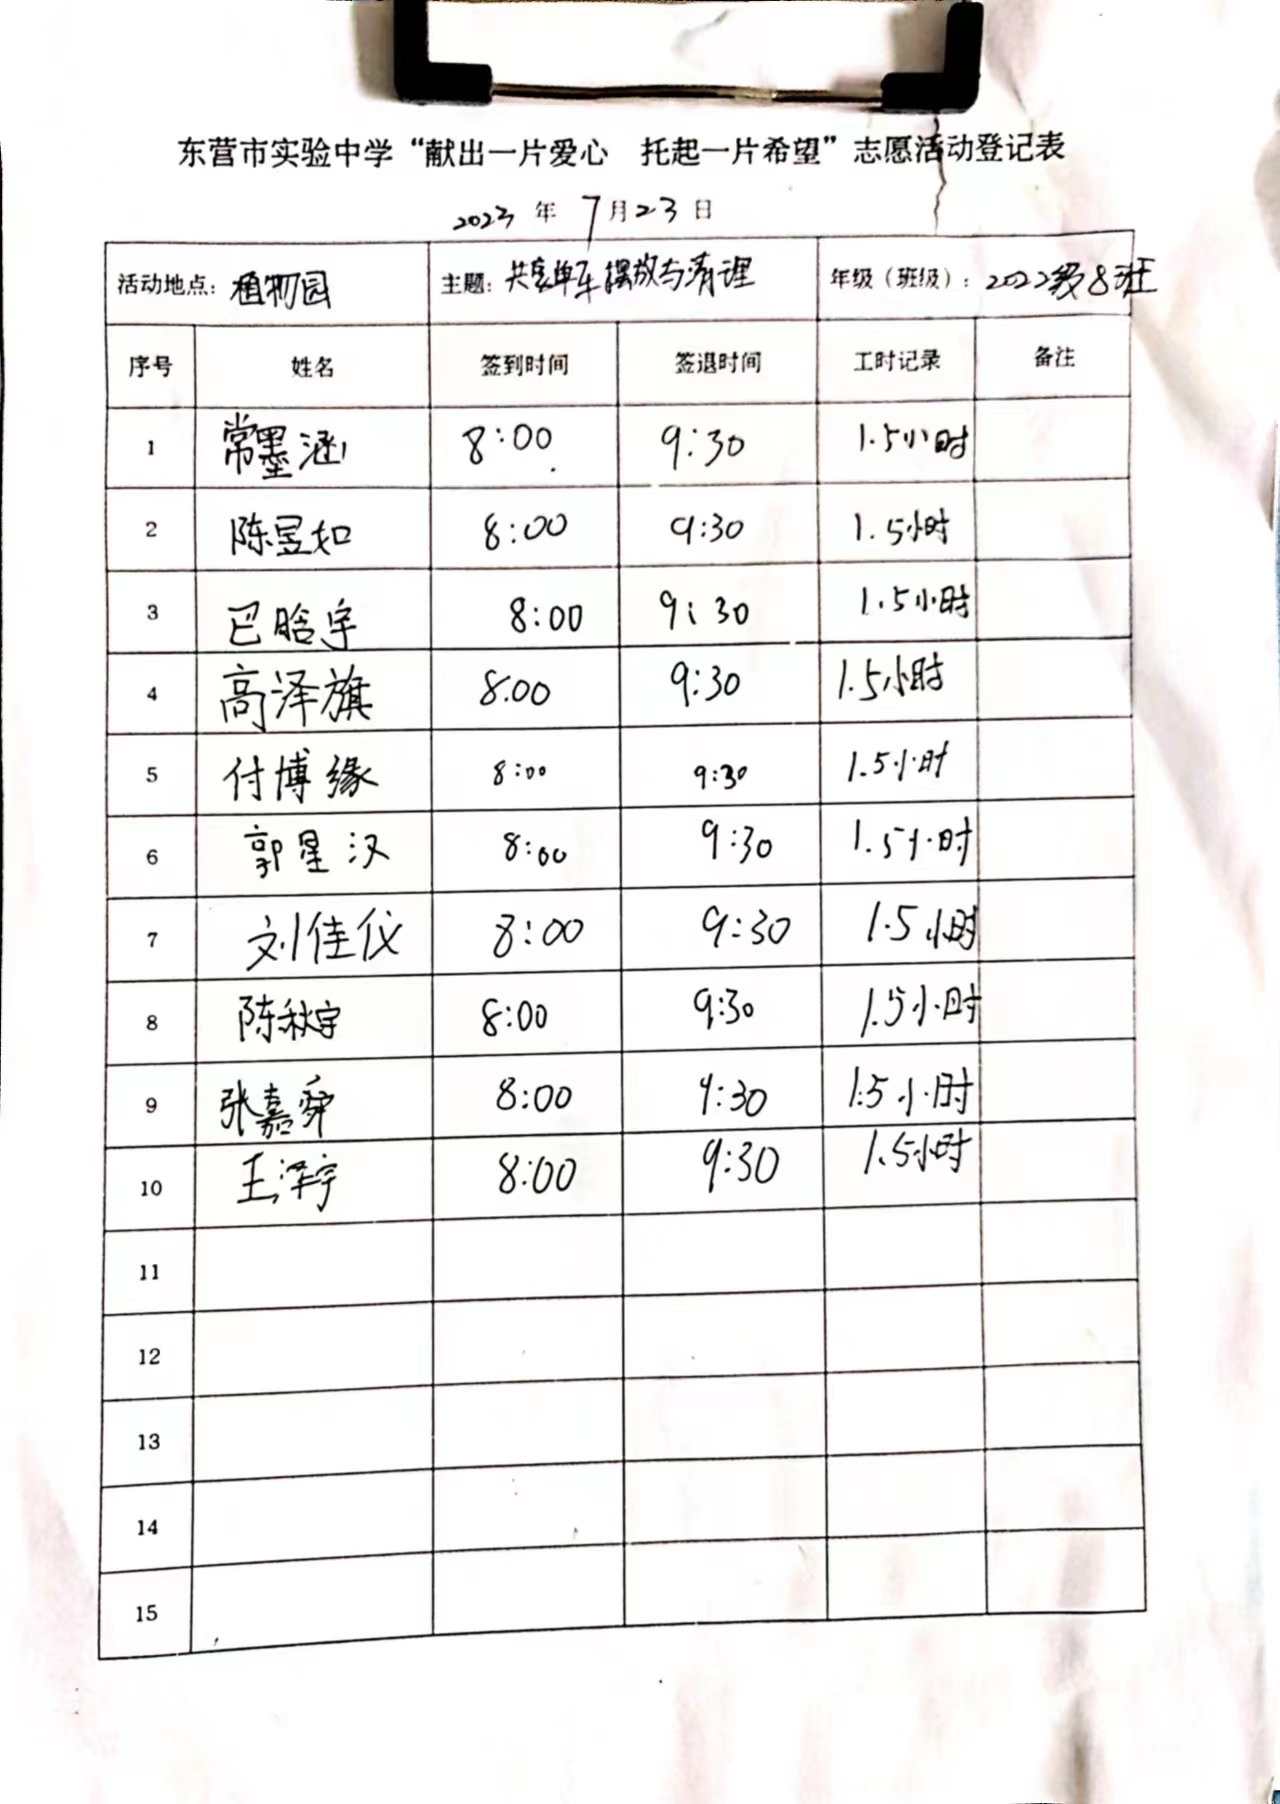 东营市实验中学“献出一片爱心 托起一片希望”志愿活动登记表
2023 年 7月23日
活动地点：植物园 主题：共享单车摆放与清理 年级（班级）：2022级8班
序号 姓名 签到时间 签退时间 工时记录 备注
1 常墨涵 8:00 9:30 1.5小时
2 陈昱如 8:00 9:30 1.5小时
3 巴晗宇 8:00 9:30 1.5小时
4 高泽旗 8:00 9:30 1.5小时
5 付博缘 8:00 9:30 1.5小时
6 郭星汉 8:00 9:30 1.5小时
7 刘佳仪 8:00 9:30 1.5小时
8 陈秋宇 8:00 9:30 1.5小时
9 张嘉舜 8:00 9:30 1.5小时
10 王泽宇 8:00 9:30 1.5小时
11
12
13
14
15